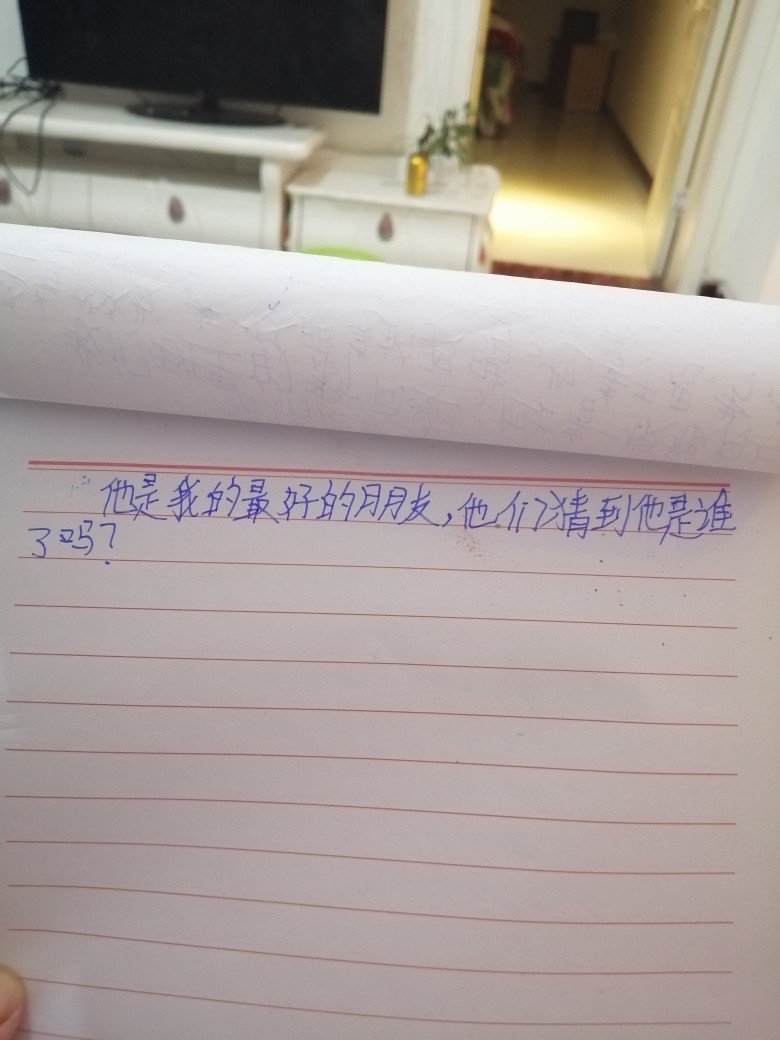 他是我的最好的朋友,他们猜到他是谁
了吗?